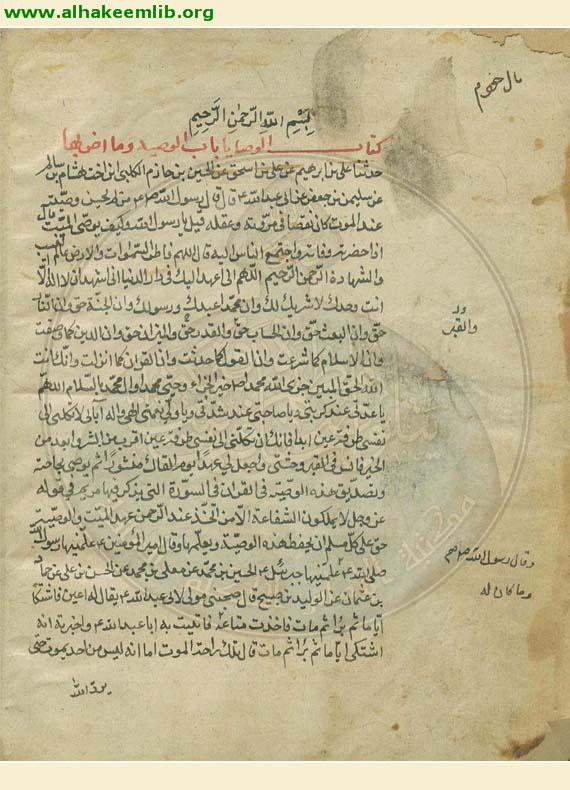 www.alhakeemlib.org
بسم الله الرحمن الرحيم
كتاب الوصايا باب الوصية وما امر بها
حدثنا علي بن ابرهيم عن علي بن اسحق عن الحسين بن حازم الكلبي ابن اخت هشام بن سالم
عن سليمن بن جعفر عن ابي عبدالله ع قال قال رسول الله ص من لم يحسن وصيته
عند الموت كان نقصا في مروته وعقله قيل يا رسول الله وكيف يوصي الميت قال
اذا حضرته وفاته واجتمع الناس اليه قال اللهم فاطر السموات والارض عالم الغيب
والشهادة الرحمن الرحيم اللهم اني اعهد اليك في دار الدنيا اني اشهد ان لا اله الا
انت وحدك لا شريك لك وان محمدا عبدك ورسولك وان الجنة حق وان النار
حق وان البعث حق وان الحساب حق والقدر حق والميزان حق وان الدين كما وصفت
وان الاسلام كما شرعت وان القول كما حدثت وان القران كما انزلت وانك انت
الله الحق المبين جزى الله محمدا ص خير الجزاء وحيى محمد وال محمد بالسلام اللهم
يا عدتي عند كربتي ويا صاحبي عند شدتي ويا ولي نعمتي الهي واله آبائي لا تكلني الى
نفسي طرفة عين ابدا فانك ان تكلني الى نفسي طرفة عين اقرب من الشر وابعد من
الخير فانس في القبر وحشتي واجعل لي عهدا يوم القاك منشورا ثم يوصي بحاجته
وتصديق هذه الوصية في القران في السورة التي يذكر فيها مريم في قوله
عز وجل لا يملكون الشفاعة الا من اتخذ عند الرحمن عهدا فهذا عهد الميت والوصية
حق على كل مسلم ان يحفظ هذه الوصية ويعلمها وقال امير المؤمنين ع علمنيها رسول الله
صلى الله ع علمنيها جبرئيل ع الحسين بن محمد عن معلى بن محمد عن الحسن بن علي عن حماد
بن عثمان عن الوليد بن صبيح قال صحبني مولى لابي عبدالله ع يقال له اعين فاشتكا
ايا ما ثم برا ثم مات فاخذت متاعه فاتيت به ابا عبدالله ع واخبرته انه
اشتكى ايا ما ثم برا ثم مات قال تلك راحة الموت اما انه ليس من احد يموت حتى
يرد الله
والقبر
وقال رسول الله ص
وما كان له